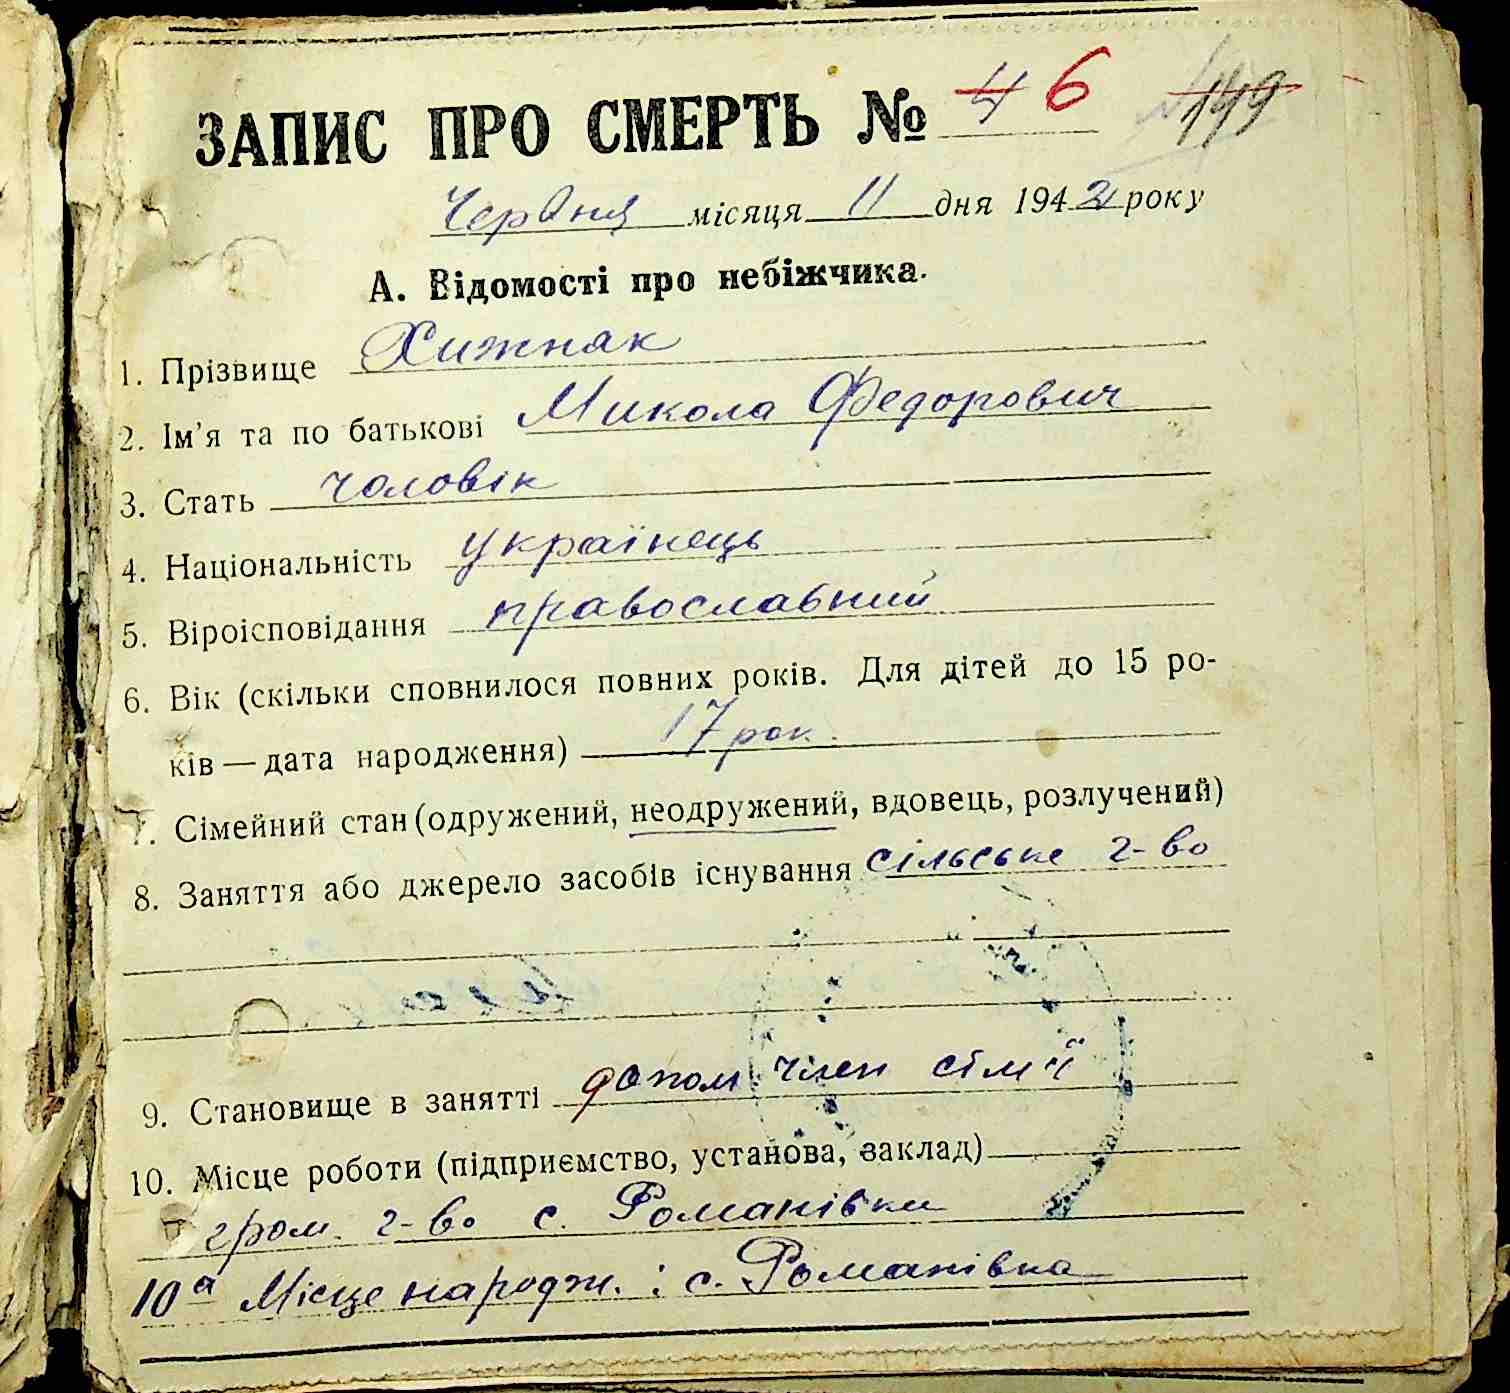 ЗАПИС ПРО СМЕРТЬ № 4 6 149
Червня місяця 11 дня 1942 року
А. Відомості про небіжчика.
1. Прізвище Хижнак
2. Ім'я та по батькові Микола Федорович
3. Стать чоловік
4. Національність українець
5. Віроісповідання православний
6. Вік (скільки сповнилося повних років. Для дітей до 15 ро-
ків — дата народження) 17 рок.
7. Сімейний стан (одружений, неодружений, вдовець, розлучений)
8. Заняття або джерело засобів існування сільське г-во
9. Становище в занятті допом. член сімї
10. Місце роботи (підприємство, установа, заклад)
гром. г-во с. Романівки
10а Місце народж. : с. Романівка